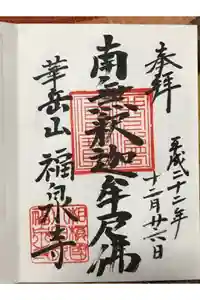 奉拝
平成二十二年
十二月廿六日
南無釈迦牟尼佛
華岳山 福泉寺